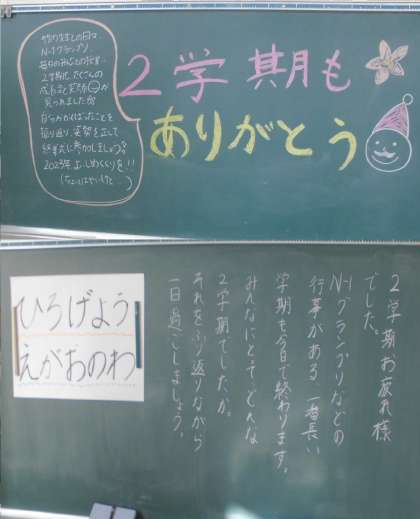 2学期も
ありがとう
N-1グランプリ、
2学期は、たくさんの
見つれました
自分ががんばったことを
振り返り、姿勢を正して
終業式に参加しましょう。
2023年よいしめくくりを!!
2学期お疲れ様
でした。
N-1グランプリなどの
行事がある一番長い
学期も今日で終わります。
みんなにとってどんな
2学期でしたか。
それをふり返りながら
一日過ごしましょう。
ひろげよう
えがおのわ